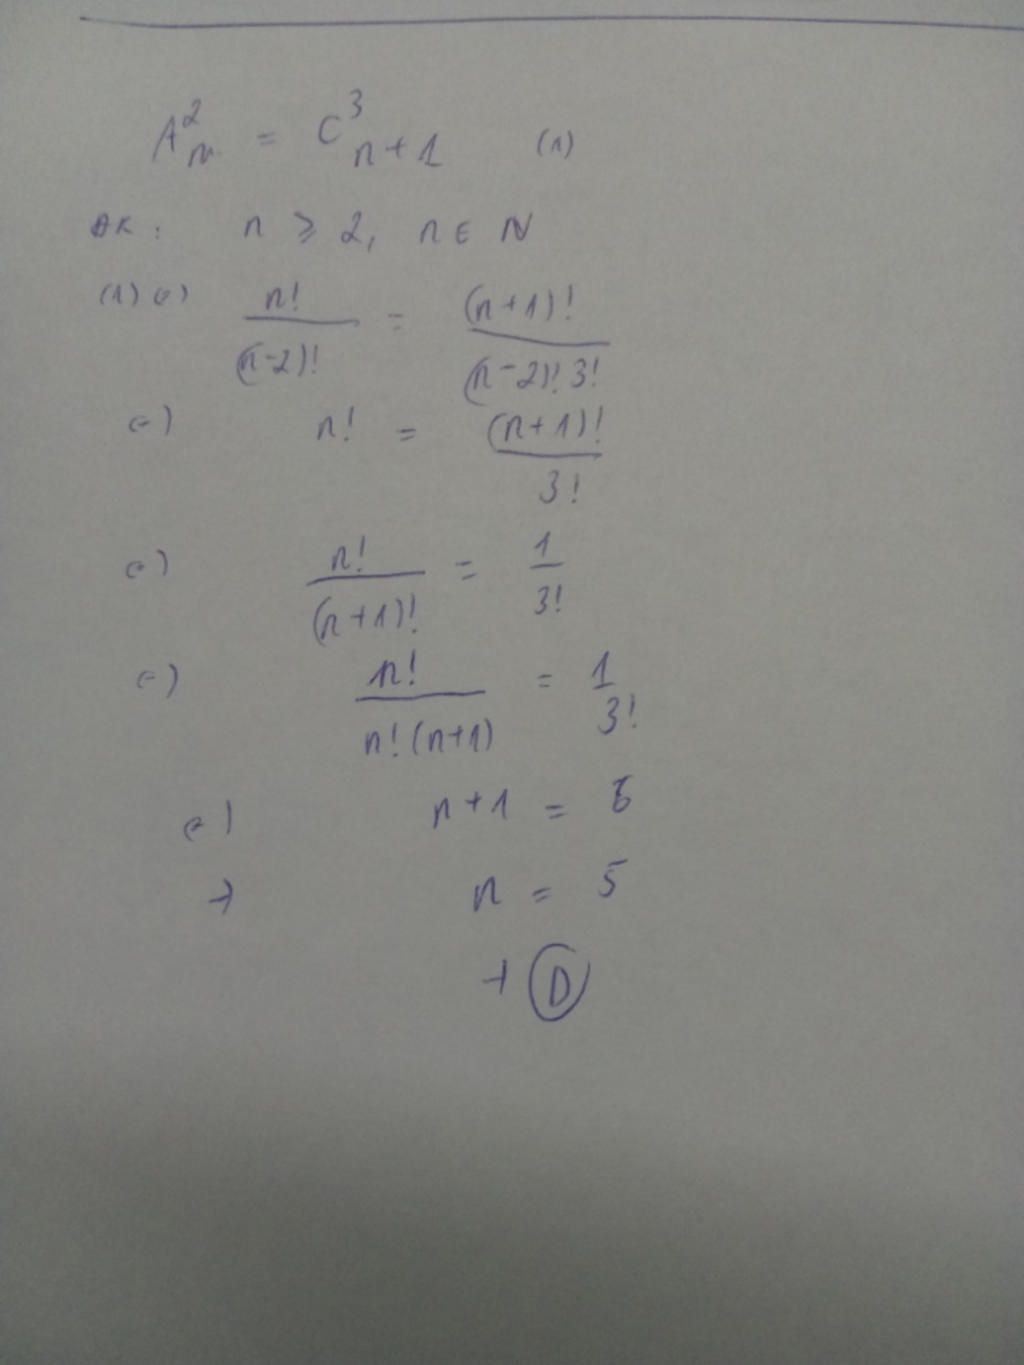 A²ₙ = C³ₙ₊₁ (1)
ĐK: n ≥ 2, n ∈ N
(1) (=) n!/(n-2)! = (n+1)!/(n-2)!3!
(=) n! = (n+1)!/3!
(=) n!/(n+1)! = 1/3!
(=) n!/n!(n+1) = 1/3!
(=) n+1 = 6
→ n = 5
→ D